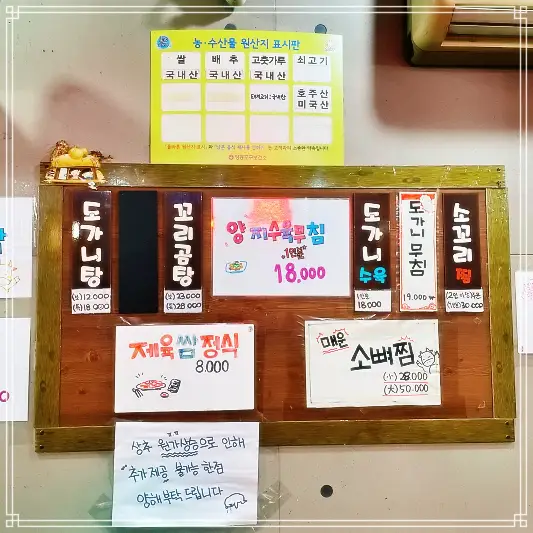 농·수산물 원산지 표시판
쌀
국내산
배추
국내산
고춧가루
국내산
쇠고기
호주산
미국산
도가니탕
(보)12.000
(특)18.000
꼬리곰탕
(보)23.000
(특)28.000
양지수육무침
1인분
18.000
도가니
수육
1인분
18.000
도가니무침
19.000
소꼬리
찜
30.000
제육쌈정식
8.000
매운
소뼈찜
(小) 28.000
(大) 50.000
상추 원가상승으로 인해
추가제공 불가능 한점
양해부탁드립니다